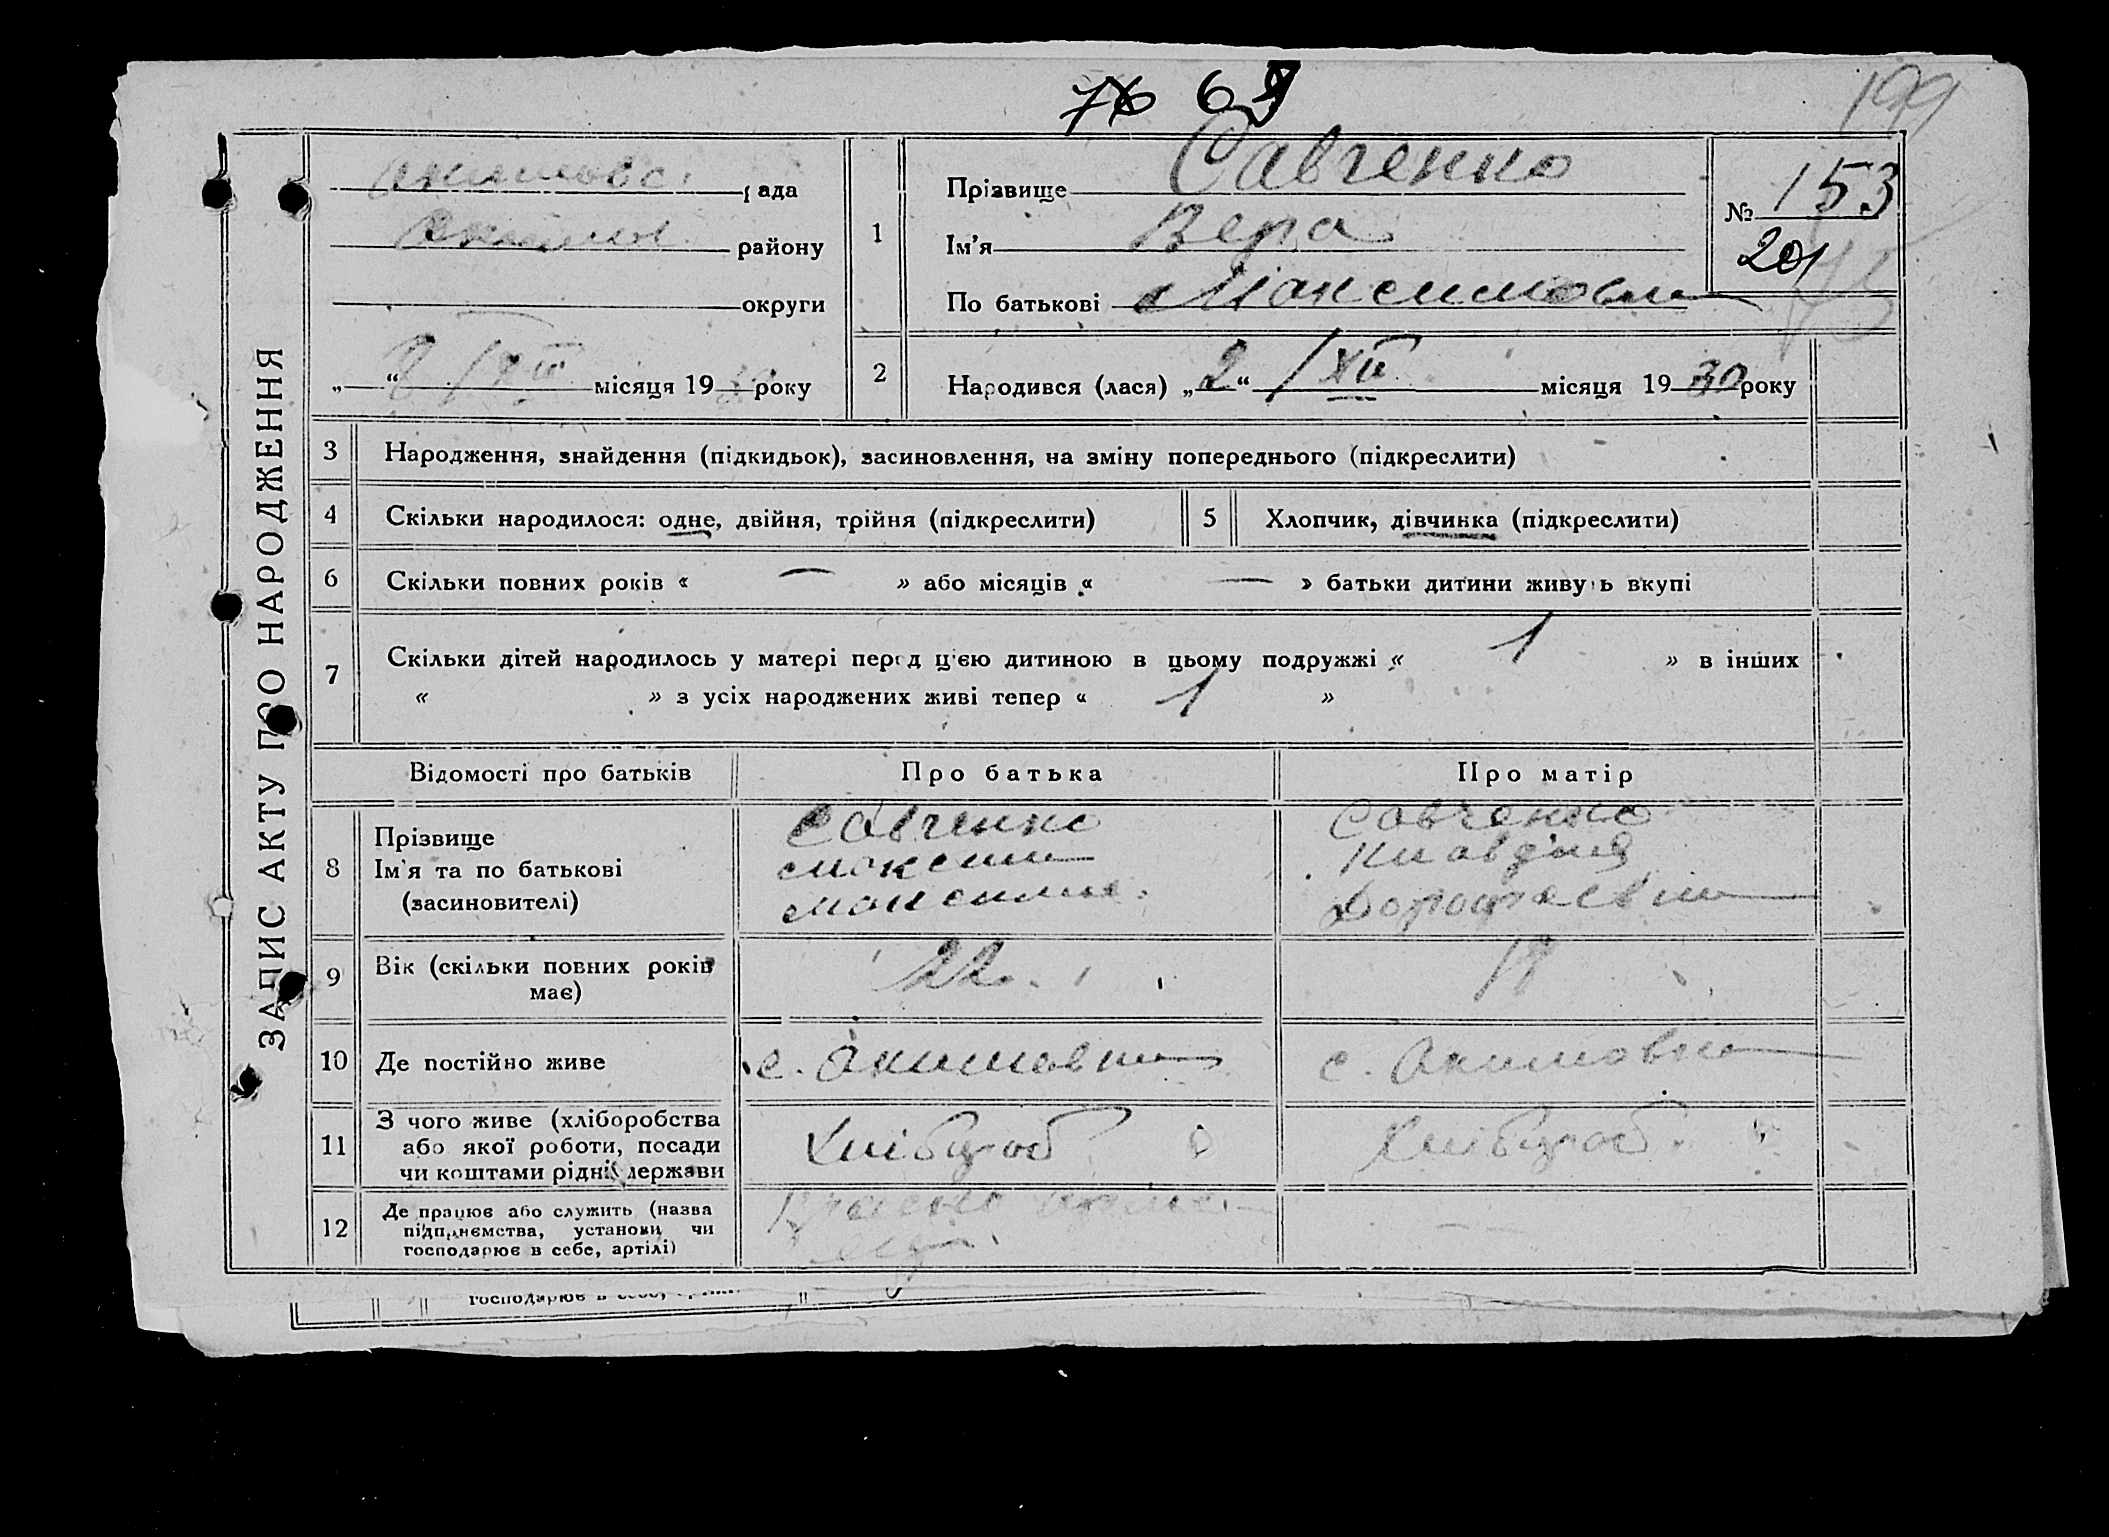 199
ЗАПИС АКТУ ПРО НАРОДЖЕННЯ
рада
району
округи
місяця 19 року
1
Прізвище Савченко
Ім'я Вера
По батькові Максимовна
№ 153
201
2
Народився (лася) „2“ /XII місяця 1930 року
3 Народження, знайдення (підкидьок), засиновлення, на зміну попереднього (підкреслити)
4 Скільки народилося: одне, двійня, трійня (підкреслити)
5 Хлопчик, дівчинка (підкреслити)
6 Скільки повних років « — » або місяців « — » батьки дитини живуть вкупі
7 Скільки дітей народилось у матері перед цією дитиною в цьому подружжі « 1 » в інших
« » з усіх народжених живі тепер « 1 »
Відомості про батьків Про батька Про матір
8
Прізвище Савченко Савченко
Ім'я та по батькові Максим Клавдия
(засиновителі) Дорофаевна
9 Вік (скільки повних років має) 22 18
10 Де постійно живе с. Акимовка с. Акимовка
11 З чого живе (хліборобства
або якої роботи, посади Хлібороб Хлібороб
чи коштами рідні, держави
12 Де працює або служить (назва
підприємства, установи, чи
господарює в себе, артілі)
господарює в себе,